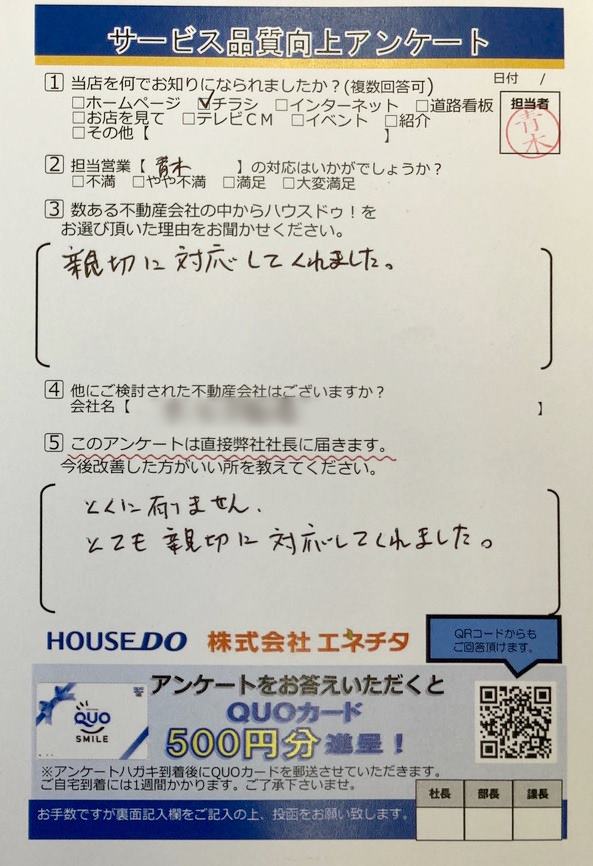 サービス品質向上アンケート
日付　/
1 当店を何でお知りになられましたか？(複数回答可)
□ホームページ ☑チラシ □インターネット □道路看板
□お店を見て □テレビCM □イベント □紹介
□その他【　】
担当者
青木
2 担当営業【 青木 】の対応はいかがでしょうか？
□不満 □やや不満 □満足 □大変満足
3 数ある不動産会社の中からハウスドゥ！を
お選び頂いた理由をお聞かせください。
親切に対応してくれました。
4 他にご検討された不動産会社はございますか？
会社名【　】
5 このアンケートは直接弊社社長に届きます。
今後改善した方がいい所を教えてください。
とくに有りません.
とても親切に対応してくれました。
HOUSEDO 株式会社 エネチタ
QRコードからも
ご回答頂けます。
アンケートをお答えいただくと
QUOカード
500円分進呈！
QUO
SMILE
※アンケートハガキ到着後にQUOカードを郵送させていただきます。
ご自宅到着には1週間かかります。ご了承下さいませ。
社長 部長 課長
お手数ですが裏面記入欄をご記入の上、投函をお願い致します。